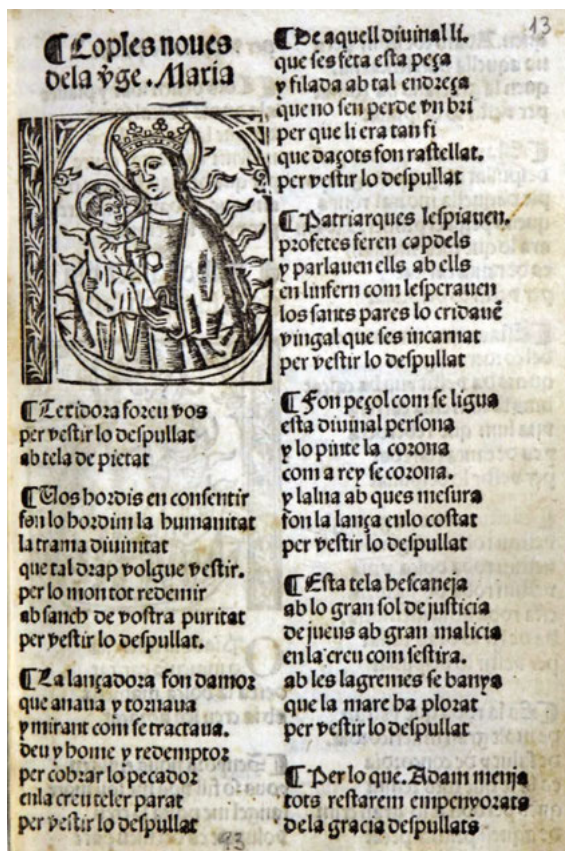 ¶Coples noues
dela v̄ge. Maria
¶Texidora foreu vos
per vestir lo despullat
ab tela de pietat
¶Uos hordis en consentir
fon lo hordim la humanitat
la trama diuinitat
que tal drap volgue vestir.
per lo mon tot redemir
ab sanch de vostra puritat
per vestir lo despullat.
¶La lançadora fon damor
que anaua y tornaua
y mirant com se tractaua.
deu y home y redemptor
per cobrar lo pecador
enla creu teler parat
per vestir lo despullat
93
13
¶De aquell diuinal li.
que ses feta esta peça
y filada ab tal endreça
que no sen perde vn bri
per que li era tan fi
que daçots fon rastellat.
per vestir lo despullat
¶Patriarques lespiauen.
profetes feren capdels
y parlauen ells ab ells
en linfern com lesperauen
los sants pares lo cridauē
vingal que ses incarnat
per vestir lo despullat
¶Fon peçol com se ligua
esta diuinal persona
y lo pinte la corona
com a rey se corona.
y lalna ab ques mesura
fon la lança enlo costat
per vestir lo despullat
¶Esta tela bescaneja
ab lo gran sol de justicia
de jueus ab gran malicia
en la creu com sestira.
ab les lagremes se banya
que la mare ha plorat
per vestir lo despullat
¶Per lo que. Adam menja
tots restarem empenyorats
dela gracia despullats